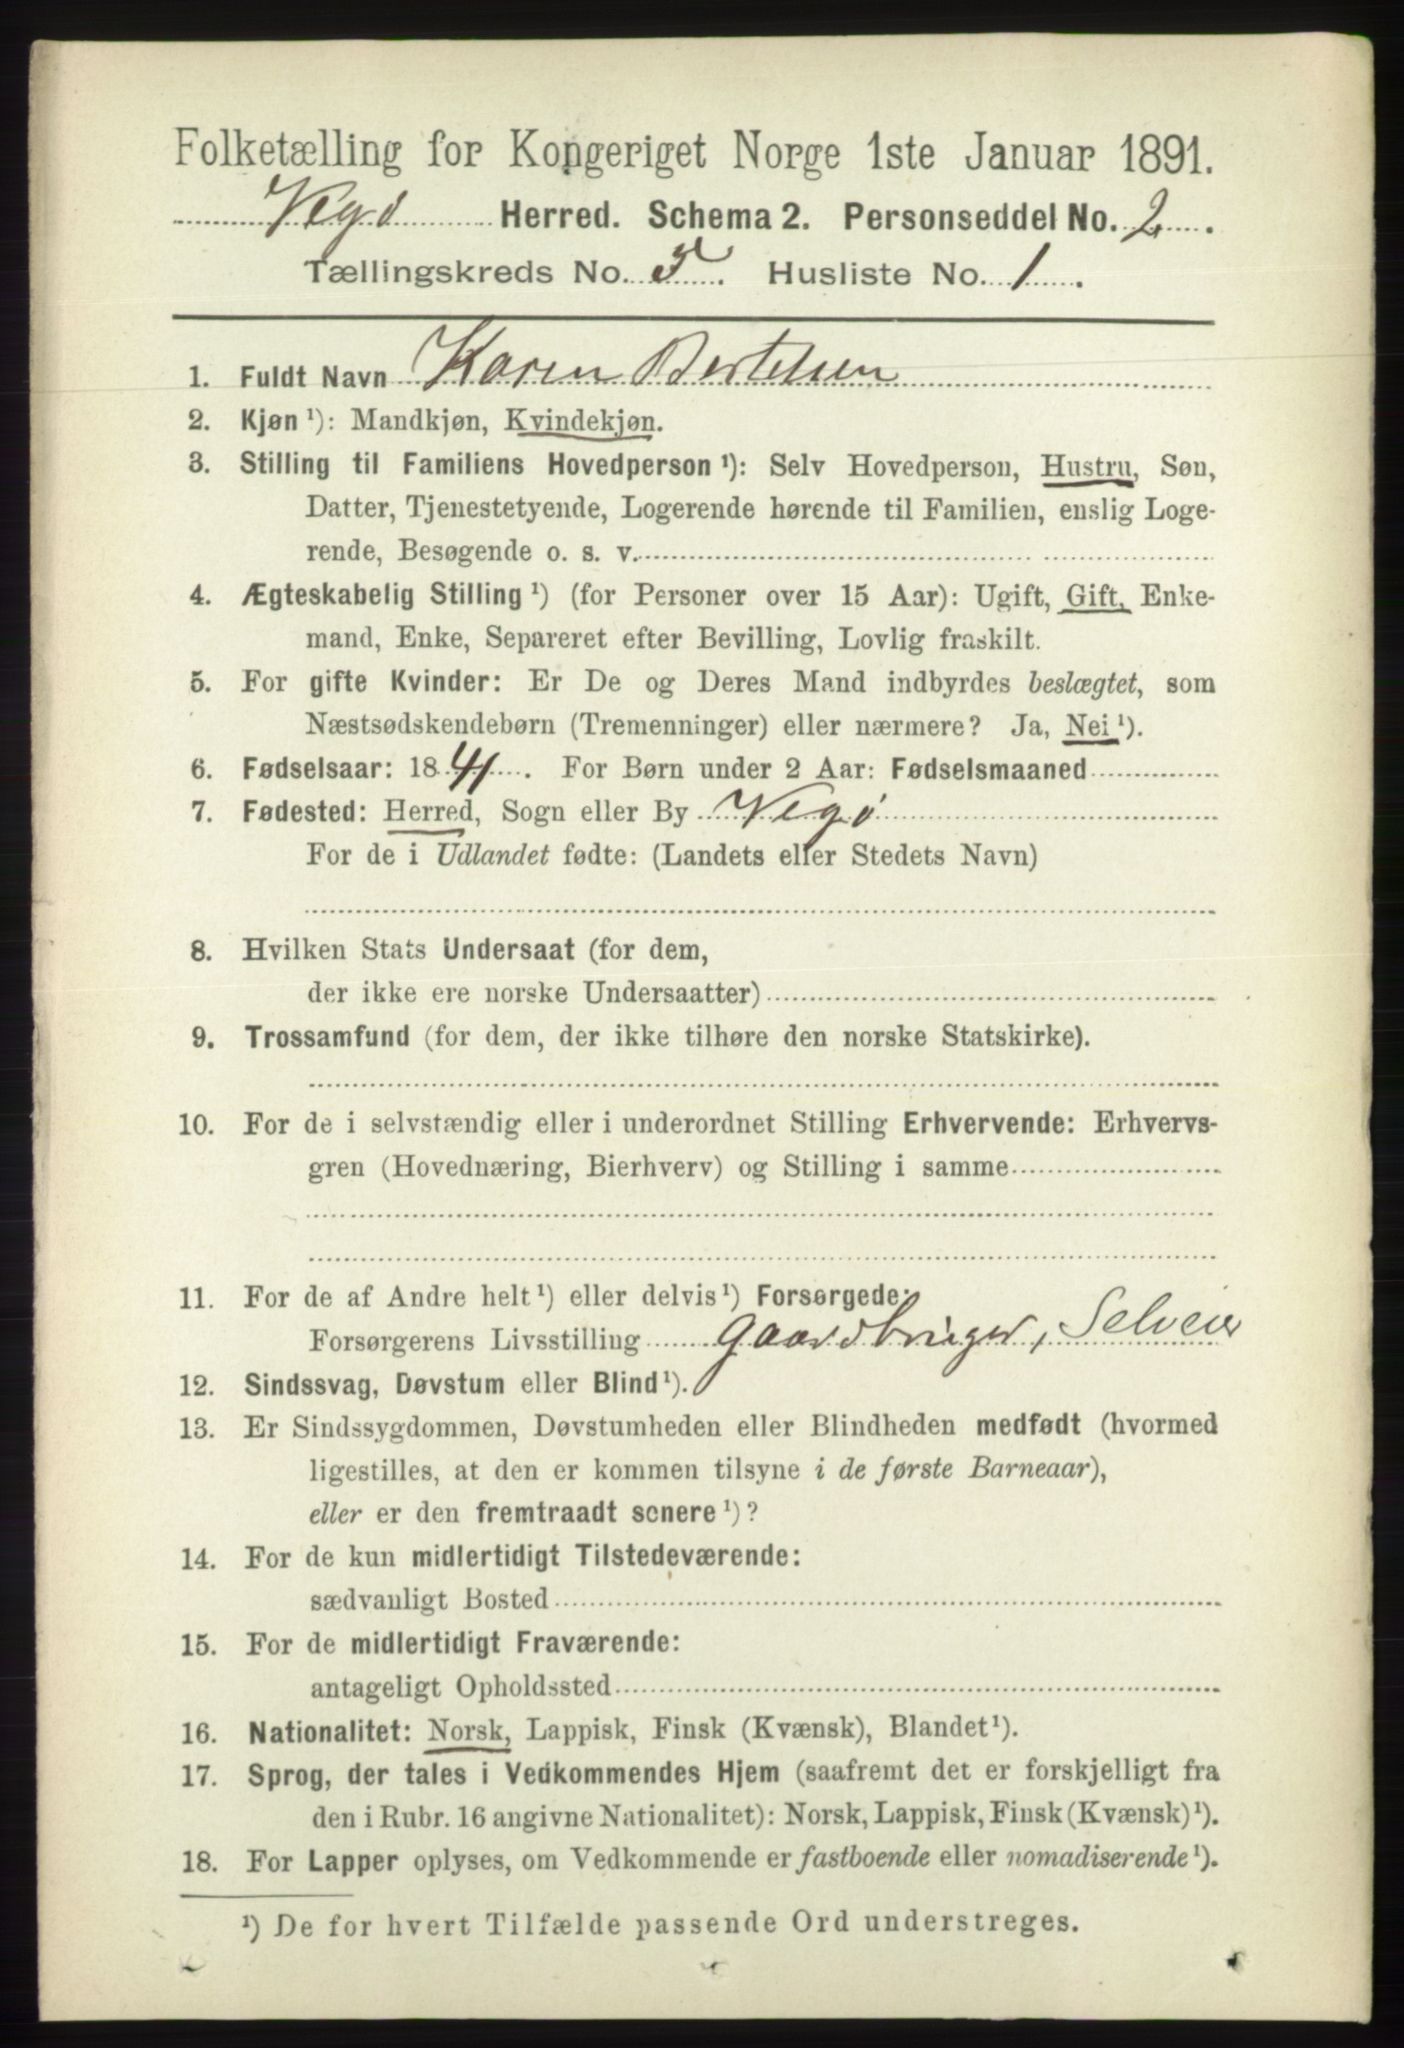 Folketælling for Kongeriget Norge 1ste Januar 1891.
Vegø Herred. Schema 2. Personseddel No. 2.
Tællingskreds No. 5. Husliste No. 1.
1. Fuldt Navn Karen Bertelsen
2. Kjøn ¹): Mandkjøn, Kvindekjøn.
3. Stilling til Familiens Hovedperson ¹): Selv Hovedperson, Hustru, Søn,
Datter, Tjenestetyende, Logerende hørende til Familien, enslig Loge-
rende, Besøgende o. s. v.
4. Ægteskabelig Stilling ¹) (for Personer over 15 Aar): Ugift, Gift, Enke-
mand, Enke, Separeret efter Bevilling, Lovlig fraskilt.
5. For gifte Kvinder: Er De og Deres Mand indbyrdes beslægtet, som
Næstsødskendebørn (Tremenninger) eller nærmere? Ja, Nei ¹).
6. Fødselsaar: 1841. For Børn under 2 Aar: Fødselsmaaned
7. Fødested: Herred, Sogn eller By Vegø
For de i Udlandet fødte: (Landets eller Stedets Navn)
8. Hvilken Stats Undersaat (for dem,
der ikke ere norske Undersaatter)
9. Trossamfund (for dem, der ikke tilhøre den norske Statskirke).
10. For de i selvstændig eller i underordnet Stilling Erhvervende: Erhvervs-
gren (Hovednæring, Bierhverv) og Stilling i samme
11. For de af Andre helt ¹) eller delvis ¹) Forsørgede:
Forsørgerens Livsstilling Gaardbruger, Selveier
12. Sindssvag, Døvstum eller Blind ¹).
13. Er Sindssygdommen, Døvstumheden eller Blindheden medfødt (hvormed
ligestilles, at den er kommen tilsyne i de første Barneaar),
eller er den fremtraadt senere ¹)?
14. For de kun midlertidigt Tilstedeværende:
sædvanligt Bosted
15. For de midlertidigt Fraværende:
antageligt Opholdssted
16. Nationalitet: Norsk, Lappisk, Finsk (Kvænsk), Blandet ¹).
17. Sprog, der tales i Vedkommendes Hjem (saafremt det er forskjelligt fra
den i Rubr. 16 angivne Nationalitet): Norsk, Lappisk, Finsk (Kvænsk) ¹).
18. For Lapper oplyses, om Vedkommende er fastboende eller nomadiserende ¹).
¹) De for hvert Tilfælde passende Ord understreges.